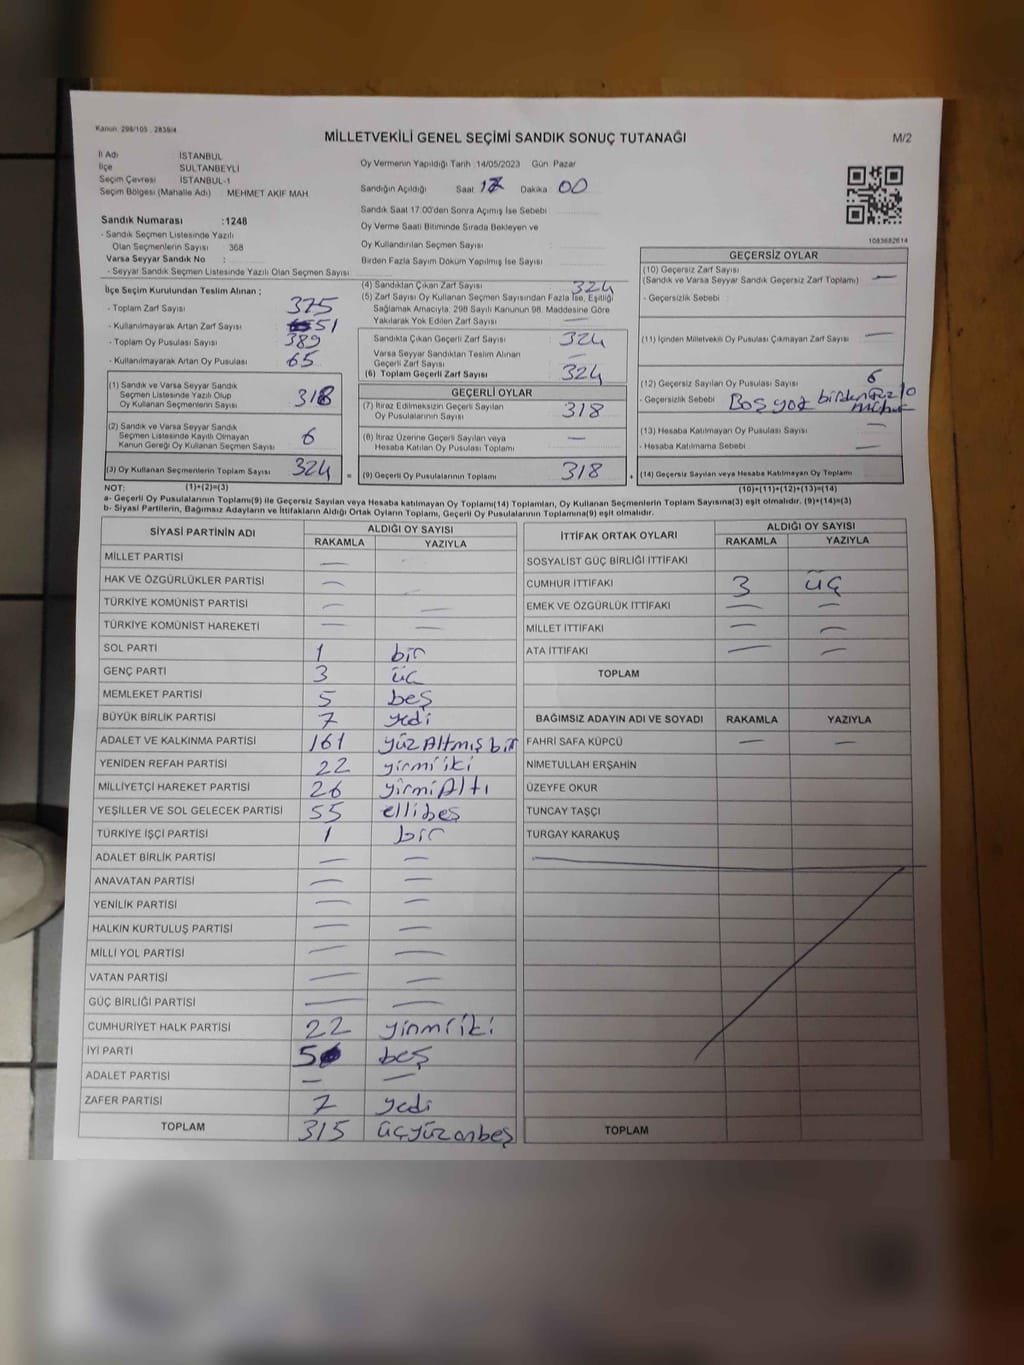 Kanun. 298/105 , 2839/4
MİLLETVEKİLİ GENEL SEÇİMİ SANDIK SONUÇ TUTANAĞI
M/2
İl Adı İSTANBUL
İlçe SULTANBEYLİ
Seçim Çevresi İSTANBUL-1
Seçim Bölgesi (Mahalle Adı) MEHMET AKİF MAH
Oy Vermenin Yapıldığı Tarih 14/05/2023 Gün Pazar
Sandığın Açıldığı Saat 17 Dakika 00
Sandık Saat 17:00'den Sonra Açımış İse Sebebi
Oy Verme Saati Bitiminde Sırada Bekleyen ve
Oy Kullandırılan Seçmen Sayısı
Birden Fazla Sayım Döküm Yapılmış İse Sayısı
1083682614
Sandık Numarası :1248
- Sandık Seçmen Listesinde Yazılı
Olan Seçmenlerin Sayısı 368
Varsa Seyyar Sandık No :
- Seyyar Sandık Seçmen Listesinde Yazılı Olan Seçmen Sayısı
İlçe Seçim Kurulundan Teslim Alınan ;
- Toplam Zarf Sayısı 375
- Kullanılmayarak Artan Zarf Sayısı 51
- Toplam Oy Pusulası Sayısı 389
- Kullanılmayarak Artan Oy Pusulası 65
(1) Sandık ve Varsa Seyyar Sandık
Seçmen Listesinde Yazılı Olup
Oy Kullanan Seçmenlerin Sayısı 318
(2) Sandık ve Varsa Seyyar Sandık
Seçmen Listesinde Kayıtlı Olmayan
Kanun Gereği Oy Kullanan Seçmen Sayısı 6
(3) Oy Kullanan Seçmenlerin Toplam Sayısı 324 =
(4) Sandıktan Çıkan Zarf Sayısı 324
(5) Zarf Sayısı Oy Kullanan Seçmen Sayısından Fazla İse, Eşitliği
Sağlamak Amacıyla, 298 Sayılı Kanunun 98. Maddesine Göre
Yakılarak Yok Edilen Zarf Sayısı —
Sandıkta Çıkan Geçerli Zarf Sayısı 324
Varsa Seyyar Sandıktan Teslim Alınan
Geçerli Zarf Sayısı —
(6) Toplam Geçerli Zarf Sayısı 324
GEÇERLİ OYLAR
(7) İtiraz Edilmeksizin Geçerli Sayılan
Oy Pusulalarının Sayısı 318
(8) İtiraz Üzerine Geçerli Sayılan veya
Hesaba Katılan Oy Pusulası Toplamı —
(9) Geçerli Oy Pusulalarının Toplamı 318 +
GEÇERSİZ OYLAR
(10) Geçersiz Zarf Sayısı
(Sandık ve Varsa Seyyar Sandık Geçersiz Zarf Toplamı) —
- Geçersizlik Sebebi :
(11) İçinden Milletvekili Oy Pusulası Çıkmayan Zarf Sayısı —
(12) Geçersiz Sayılan Oy Pusulası Sayısı 6
- Geçersizlik Sebebi : Boş birden fazla
(13) Hesaba Katılmayan Oy Pusulası Sayısı —
- Hesaba Katılmama Sebebi : —
(14) Geçersiz Sayılan veya Hesaba Katılmayan Oy Toplamı
NOT: (1)+(2)=(3) (10)+(11)+(12)+(13)=(14)
a- Geçerli Oy Pusulalarının Toplamı(9) ile Geçersiz Sayılan veya Hesaba katılmayan Oy Toplamı(14) Toplamları, Oy Kullanan Seçmenlerin Toplam Sayısına(3) eşit olmalıdır. (9)+(14)=(3)
b- Siyasi Partilerin, Bağımsız Adayların ve İttifakların Aldığı Ortak Oyların Toplamı, Geçerli Oy Pusulalarının Toplamına(9) eşit olmalıdır.
SİYASİ PARTİNİN ADI ALDIĞI OY SAYISI
RAKAMLA YAZIYLA
MİLLET PARTİSİ —
HAK VE ÖZGÜRLÜKLER PARTİSİ —
TÜRKİYE KOMÜNİST PARTİSİ — —
TÜRKİYE KOMÜNİST HAREKETİ — —
SOL PARTİ 1 bir
GENÇ PARTİ 3 üç
MEMLEKET PARTİSİ 5 beş
BÜYÜK BİRLİK PARTİSİ 7 yedi
ADALET VE KALKINMA PARTİSİ 161 yüz Altmış bir
YENİDEN REFAH PARTİSİ 22 yirmi iki
MİLLİYETÇİ HAREKET PARTİSİ 26 yirmi Altı
YEŞİLLER VE SOL GELECEK PARTİSİ 55 elli beş
TÜRKİYE İŞÇİ PARTİSİ 1 bir
ADALET BİRLİK PARTİSİ — —
ANAVATAN PARTİSİ — —
YENİLİK PARTİSİ — —
HALKIN KURTULUŞ PARTİSİ — —
MİLLİ YOL PARTİSİ — —
VATAN PARTİSİ — —
GÜÇ BİRLİĞİ PARTİSİ — —
CUMHURİYET HALK PARTİSİ 22 yirmi iki
İYİ PARTİ 5 beş
ADALET PARTİSİ — —
ZAFER PARTİSİ 7 yedi
TOPLAM 315 üçyüz onbeş
İTTİFAK ORTAK OYLARI ALDIĞI OY SAYISI
RAKAMLA YAZIYLA
SOSYALİST GÜÇ BİRLİĞİ İTTİFAKI
CUMHUR İTTİFAKI 3 üç
EMEK VE ÖZGÜRLÜK İTTİFAKI — —
MİLLET İTTİFAKI — —
ATA İTTİFAKI — —
TOPLAM
BAĞIMSIZ ADAYIN ADI VE SOYADI RAKAMLA YAZIYLA
FAHRİ SAFA KÜPCÜ — —
NİMETULLAH ERŞAHİN
ÜZEYFE OKUR
TUNCAY TAŞÇI
TURGAY KARAKUŞ
TOPLAM